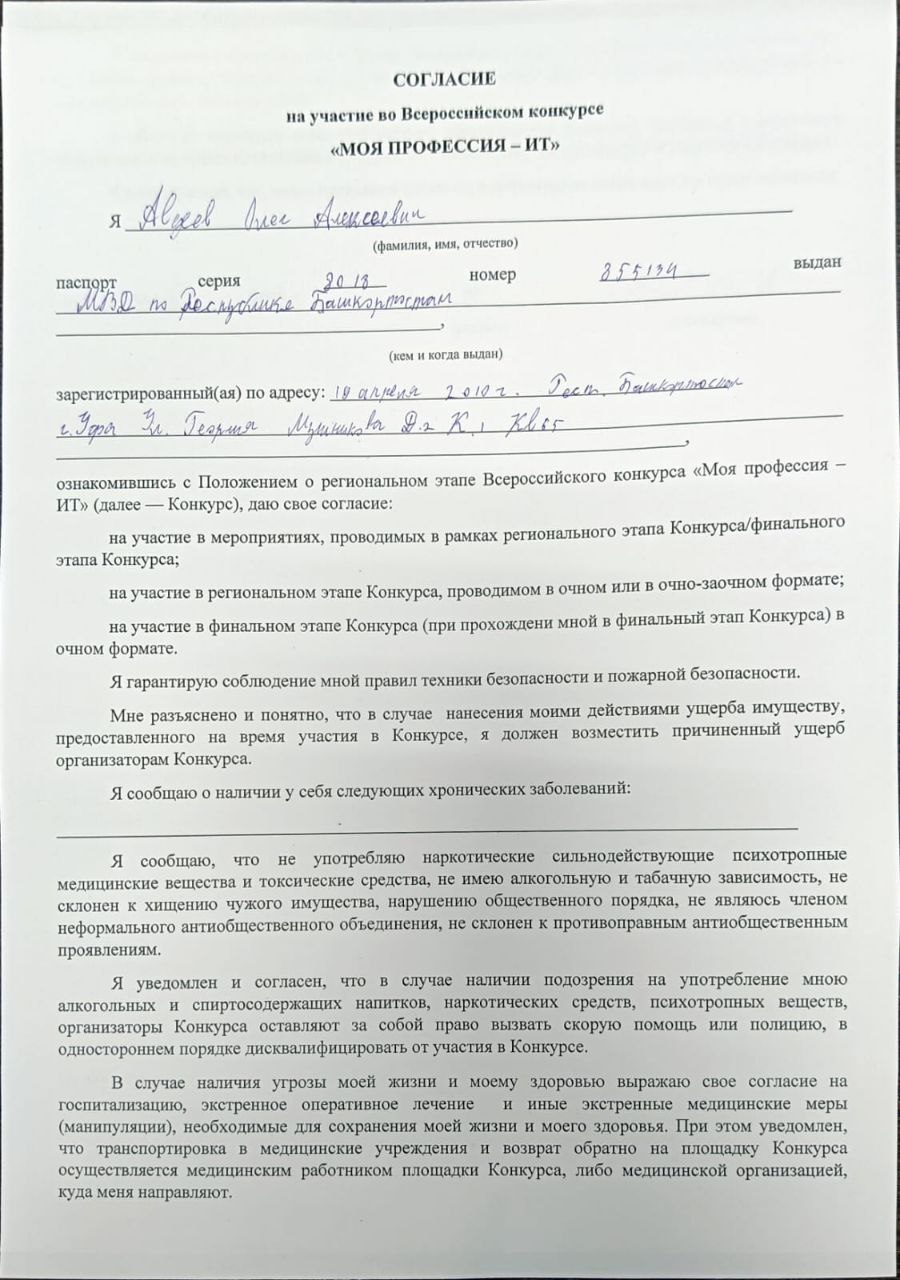 СОГЛАСИЕ
на участие во Всероссийском конкурсе
«МОЯ ПРОФЕССИЯ – ИТ»
Я Олег Алексеевич
(фамилия, имя, отчество)
паспорт серия номер 355134 выдан
МВД по Республике Башкортостан
,
(кем и когда выдан)
зарегистрированный(ая) по адресу: 19 апреля 2010 г. Респ. Башкортостан
г. Уфа Ул. Георгия Д.2 К.1 Кв 65
,
ознакомившись с Положением о региональном этапе Всероссийского конкурса «Моя профессия –
ИТ» (далее — Конкурс), даю свое согласие:
на участие в мероприятиях, проводимых в рамках регионального этапа Конкурса/финального
этапа Конкурса;
на участие в региональном этапе Конкурса, проводимом в очном или в очно-заочном формате;
на участие в финальном этапе Конкурса (при прохождени мной в финальный этап Конкурса) в
очном формате.
Я гарантирую соблюдение мной правил техники безопасности и пожарной безопасности.
Мне разъяснено и понятно, что в случае нанесения моими действиями ущерба имуществу,
предоставленного на время участия в Конкурсе, я должен возместить причиненный ущерб
организаторам Конкурса.
Я сообщаю о наличии у себя следующих хронических заболеваний:
Я сообщаю, что не употребляю наркотические сильнодействующие психотропные
медицинские вещества и токсические средства, не имею алкогольную и табачную зависимость, не
склонен к хищению чужого имущества, нарушению общественного порядка, не являюсь членом
неформального антиобщественного объединения, не склонен к противоправным антиобщественным
проявлениям.
Я уведомлен и согласен, что в случае наличии подозрения на употребление мною
алкогольных и спиртосодержащих напитков, наркотических средств, психотропных веществ,
организаторы Конкурса оставляют за собой право вызвать скорую помощь или полицию, в
одностороннем порядке дисквалифицировать от участия в Конкурсе.
В случае наличия угрозы моей жизни и моему здоровью выражаю свое согласие на
госпитализацию, экстренное оперативное лечение и иные экстренные медицинские меры
(манипуляции), необходимые для сохранения моей жизни и моего здоровья. При этом уведомлен,
что транспортировка в медицинские учреждения и возврат обратно на площадку Конкурса
осуществляется медицинским работником площадки Конкурса, либо медицинской организацией,
куда меня направляют.